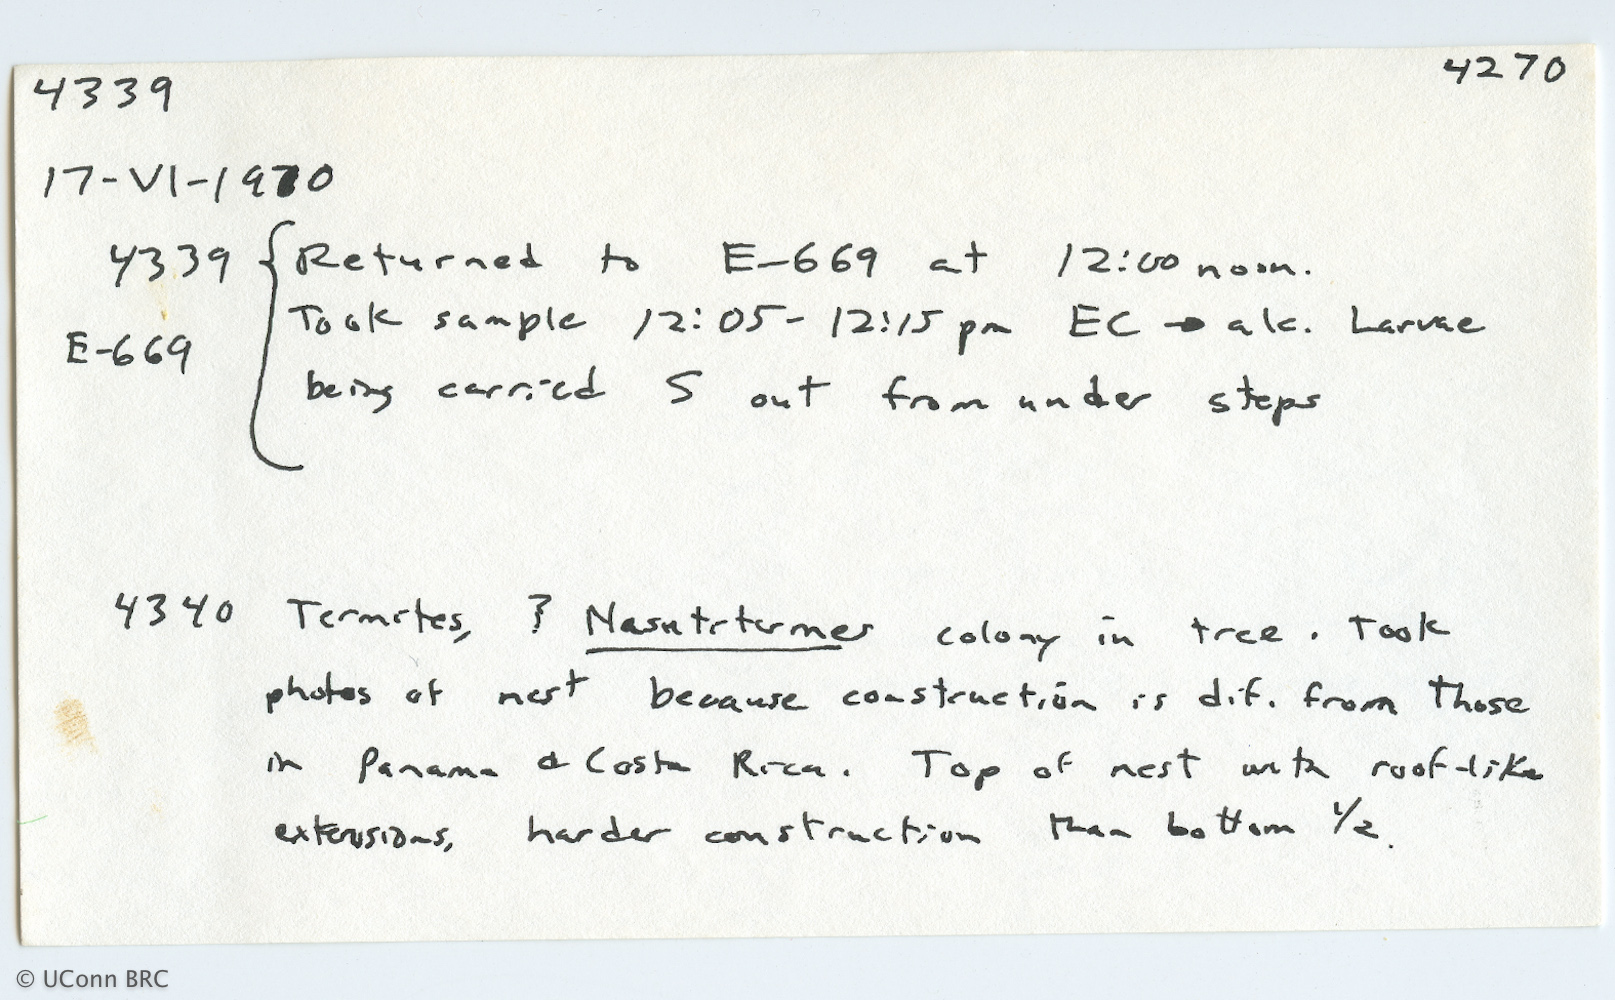 4339 4270
17-VI-1970
4339 { Returned to E-669 at 12:00 noon.
Took sample 12:05-12:15 pm EC → alc. Larvae
E-669
being carried S out from under steps
4340 Termites, ? Nasutitermes colony in tree. Took
photos of nest because construction is dif. from those
in Panama & Costa Rica. Top of nest with roof-like
extensions, harder construction than bottom 1/2.
© UConn BRC